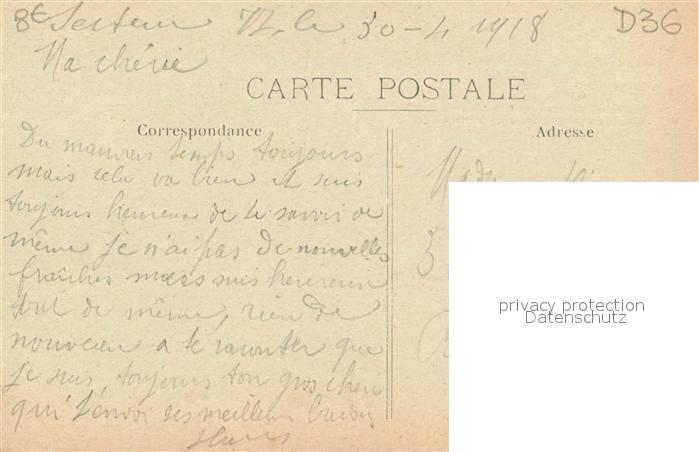 8e Secteur 72, le 30-4 1918
D36
Ma chérie
CARTE POSTALE
Correspondance
Adresse
Du mauvais temps toujours
mais cela va bien et suis
toujours heureux de te savoir de
même je n'ai pas de nouvelles
fraîches mais suis heureux
tout de même, rien de
nouveau a te raconter que
je suis, toujours ton gros chéri
qui t'envoi ses meilleurs baisers
privacy protection
Datenschutz